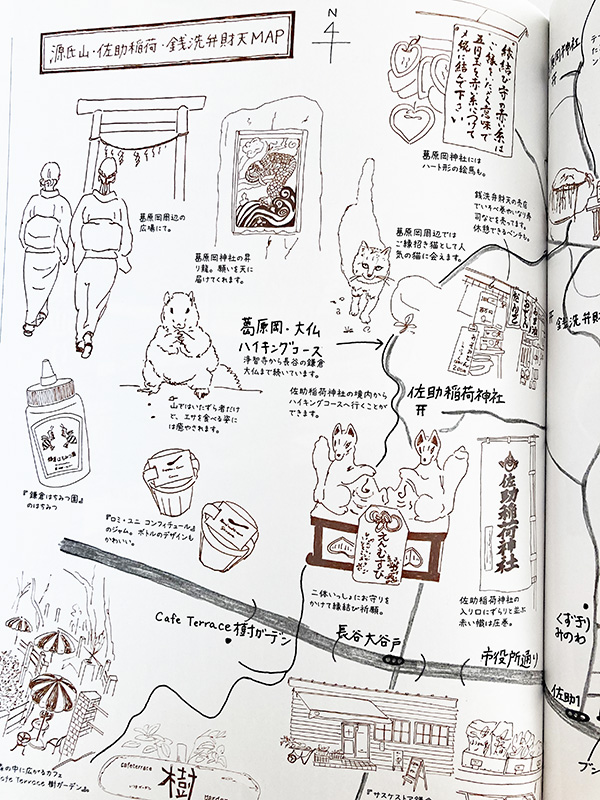 源氏山・佐助稲荷・銭洗弁財天MAP
N
縁結びの赤い糸は
ご縁がありますようにという意味で
五円玉を赤い糸につけて
〆縄に結んで下さい
葛原岡神社には
ハート形の絵馬も。
葛原岡周辺の
広場にて。
葛原岡神社の昇
り龍。願いを天に
届けてくれます。
葛原岡周辺では
ご縁招き猫として人
気の猫に会えます。
銭洗弁財天の売店
でいそべ巻やいなり寿
司などを売ってます。
休憩できるベンチも。
葛原岡・大仏
ハイキングコース
浄智寺から長谷の鎌倉
大仏まで続いています。
山ではいたずら者だけ
ど、エサを食べる姿に
は癒やされます。
佐助稲荷神社の境内から
ハイキングコースへ行くことが
できます。
佐助稲荷神社
銭洗弁財天
おでん
『鎌倉はちみつ園』
のはちみつ
『ロミ・ユニ コンフィチュール』
のジャム。ボトルのデザインも
かわいい。
えんむすび
佐助稲荷神社
二体いっしょにお守りを
かけて縁結び祈願。
佐助稲荷神社の
入り口にずらりと並ぶ
赤い幟は圧巻。
Cafe Terrace 樹ガーデン
長谷大谷戸
市役所通り
くずきり
みのわ
佐助1
の中に広がるカフェ
afe Terrace 樹ガーデン』。
cafeterrace
樹
Garden
『サスケストア鎌